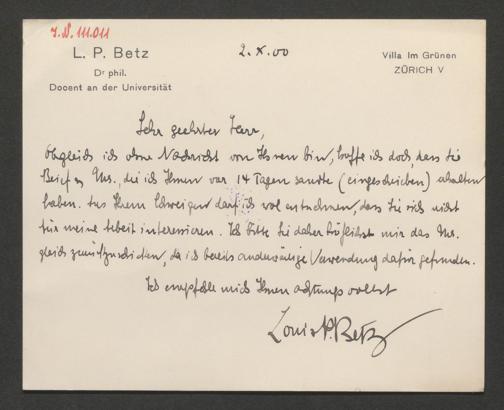 J. N. 111.011
L. P. Betz
Dr phil.
Docent an der Universität
2. X. 00
Villa Im Grünen
ZÜRICH V
Sehr geehrter Herr,
Obgleich ich ohne Nachricht von Ihnen bin, hoffe ich doch, dass Sie
Brief u Mns., die ich Ihnen vor 14 Tagen sandte (eingeschrieben) erhalten
haben. Aus Ihrem Schweigen darf ich wol entnehmen, dass Sie sich nicht
für meine Arbeit interessieren. Ich bitte Sie daher höflichst mir das Mns.
gleich zurückzuschicken, da ich bereits anderweitige Verwendung dafür gefunden.
Ich empfehle mich Ihnen achtungsvollst
Louis P. Betz